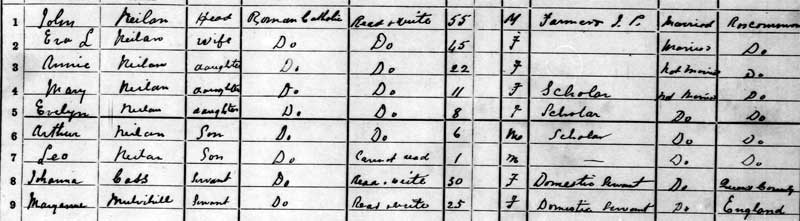 1 John Neilan Head Roman Catholic Read & write 55 M Farmer & J. P. Married Roscommon
2 Eva L Neilan Wife Do Do 45 F Married Do
3 Annie Neilan daughter Do Do 22 F Not Married Do
4 Mary Neilan daughter Do Do 11 F Scholar Not Married Do
5 Evelyn Neilan daughter Do Do 8 F Scholar Do Do
6 Arthur Neilan Son Do Do 6 M Scholar Do Do
7 Leo Neilan Son Do Cannot read 1 M — Do Do
8 Johanna Servant Do Read & write 30 F Domestic Servant Do Queens County
9 Maryanne Mulvihill Servant Do Read & write 25 F Domestic Servant Do England